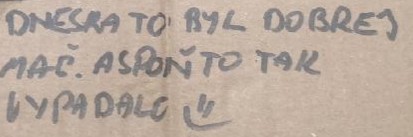 DNESKA TO BYL DOBREJ
MAČ. ASPOŇ TO TAK
VYPADALO